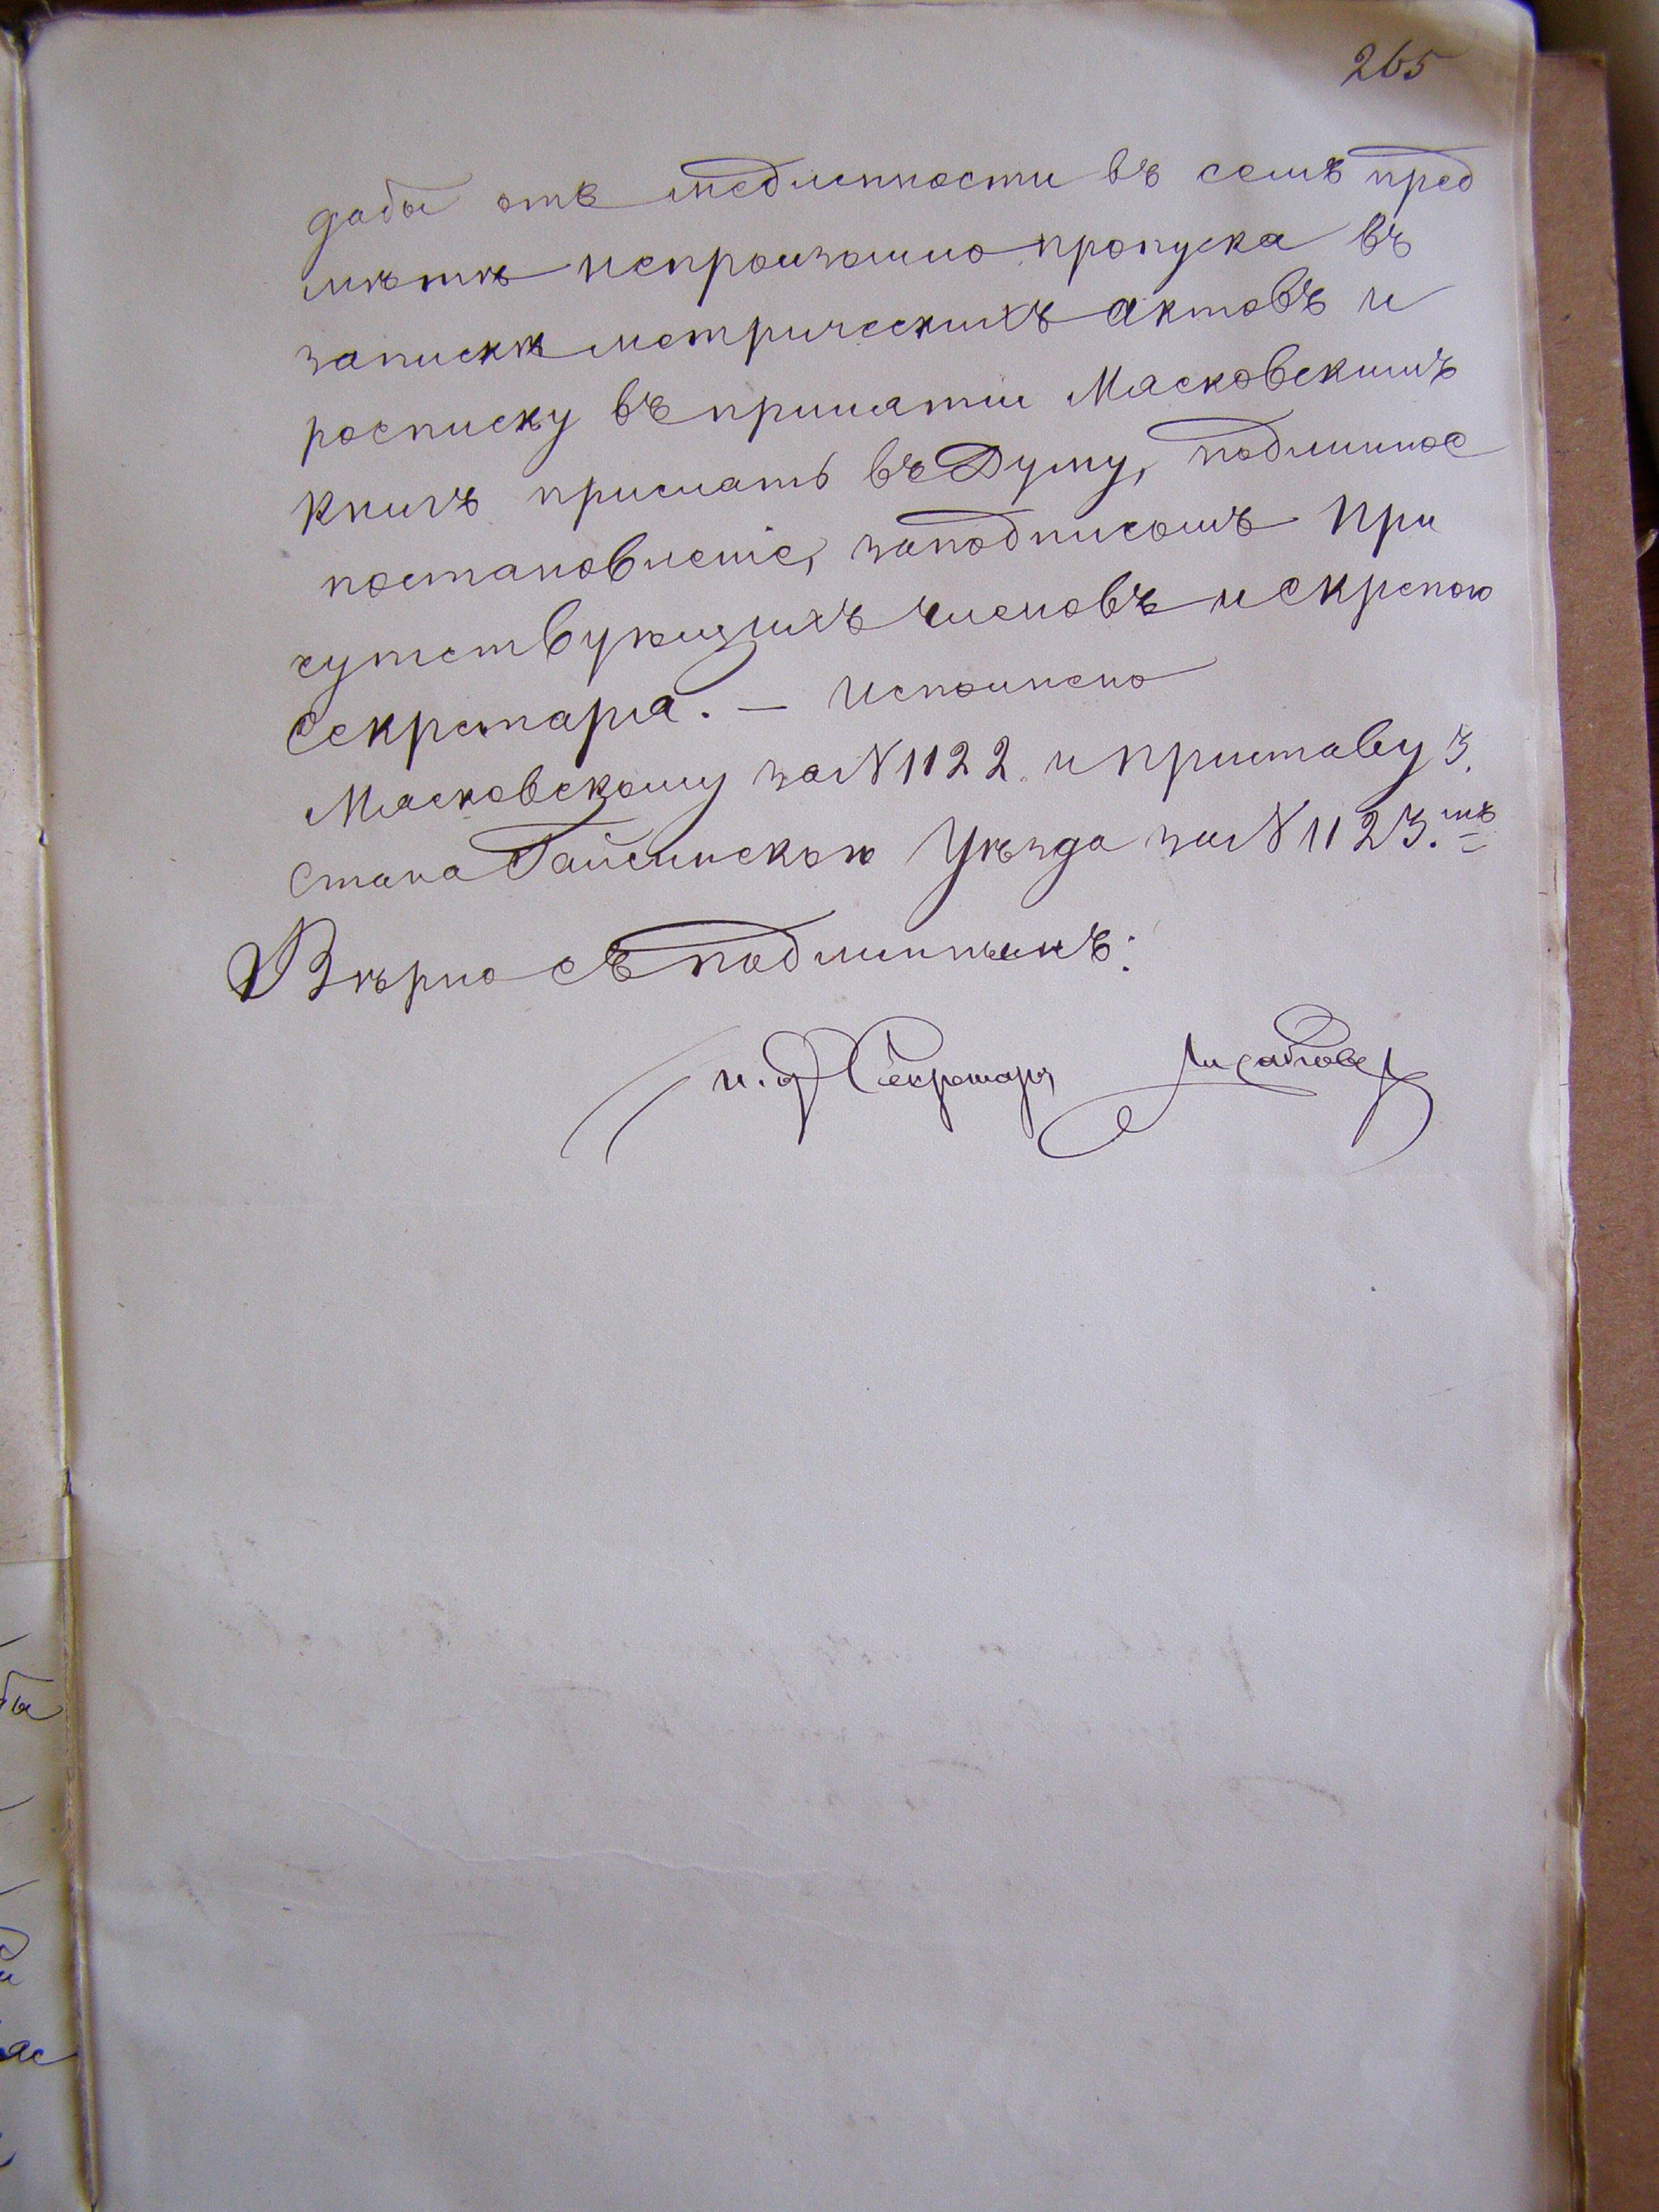 265
дабы отъ медленности въ семъ пред
мѣтѣ непроизошло пропуска въ
запискѣ метрическихъ актовъ и
росписку въ принятіи Масковскимъ
книгъ прислать въ Думу, подлинное
постановленіе, заподписомъ При
сутствующихъ членовъ искрепою
Секретаря. – Исполнено
Масковскому за N 1122 и Приставу 3.
Стана Гайсинскаго Уѣзда за N 1123.мъ
Вѣрно съ подлиннымъ:
и. д. Секретаря